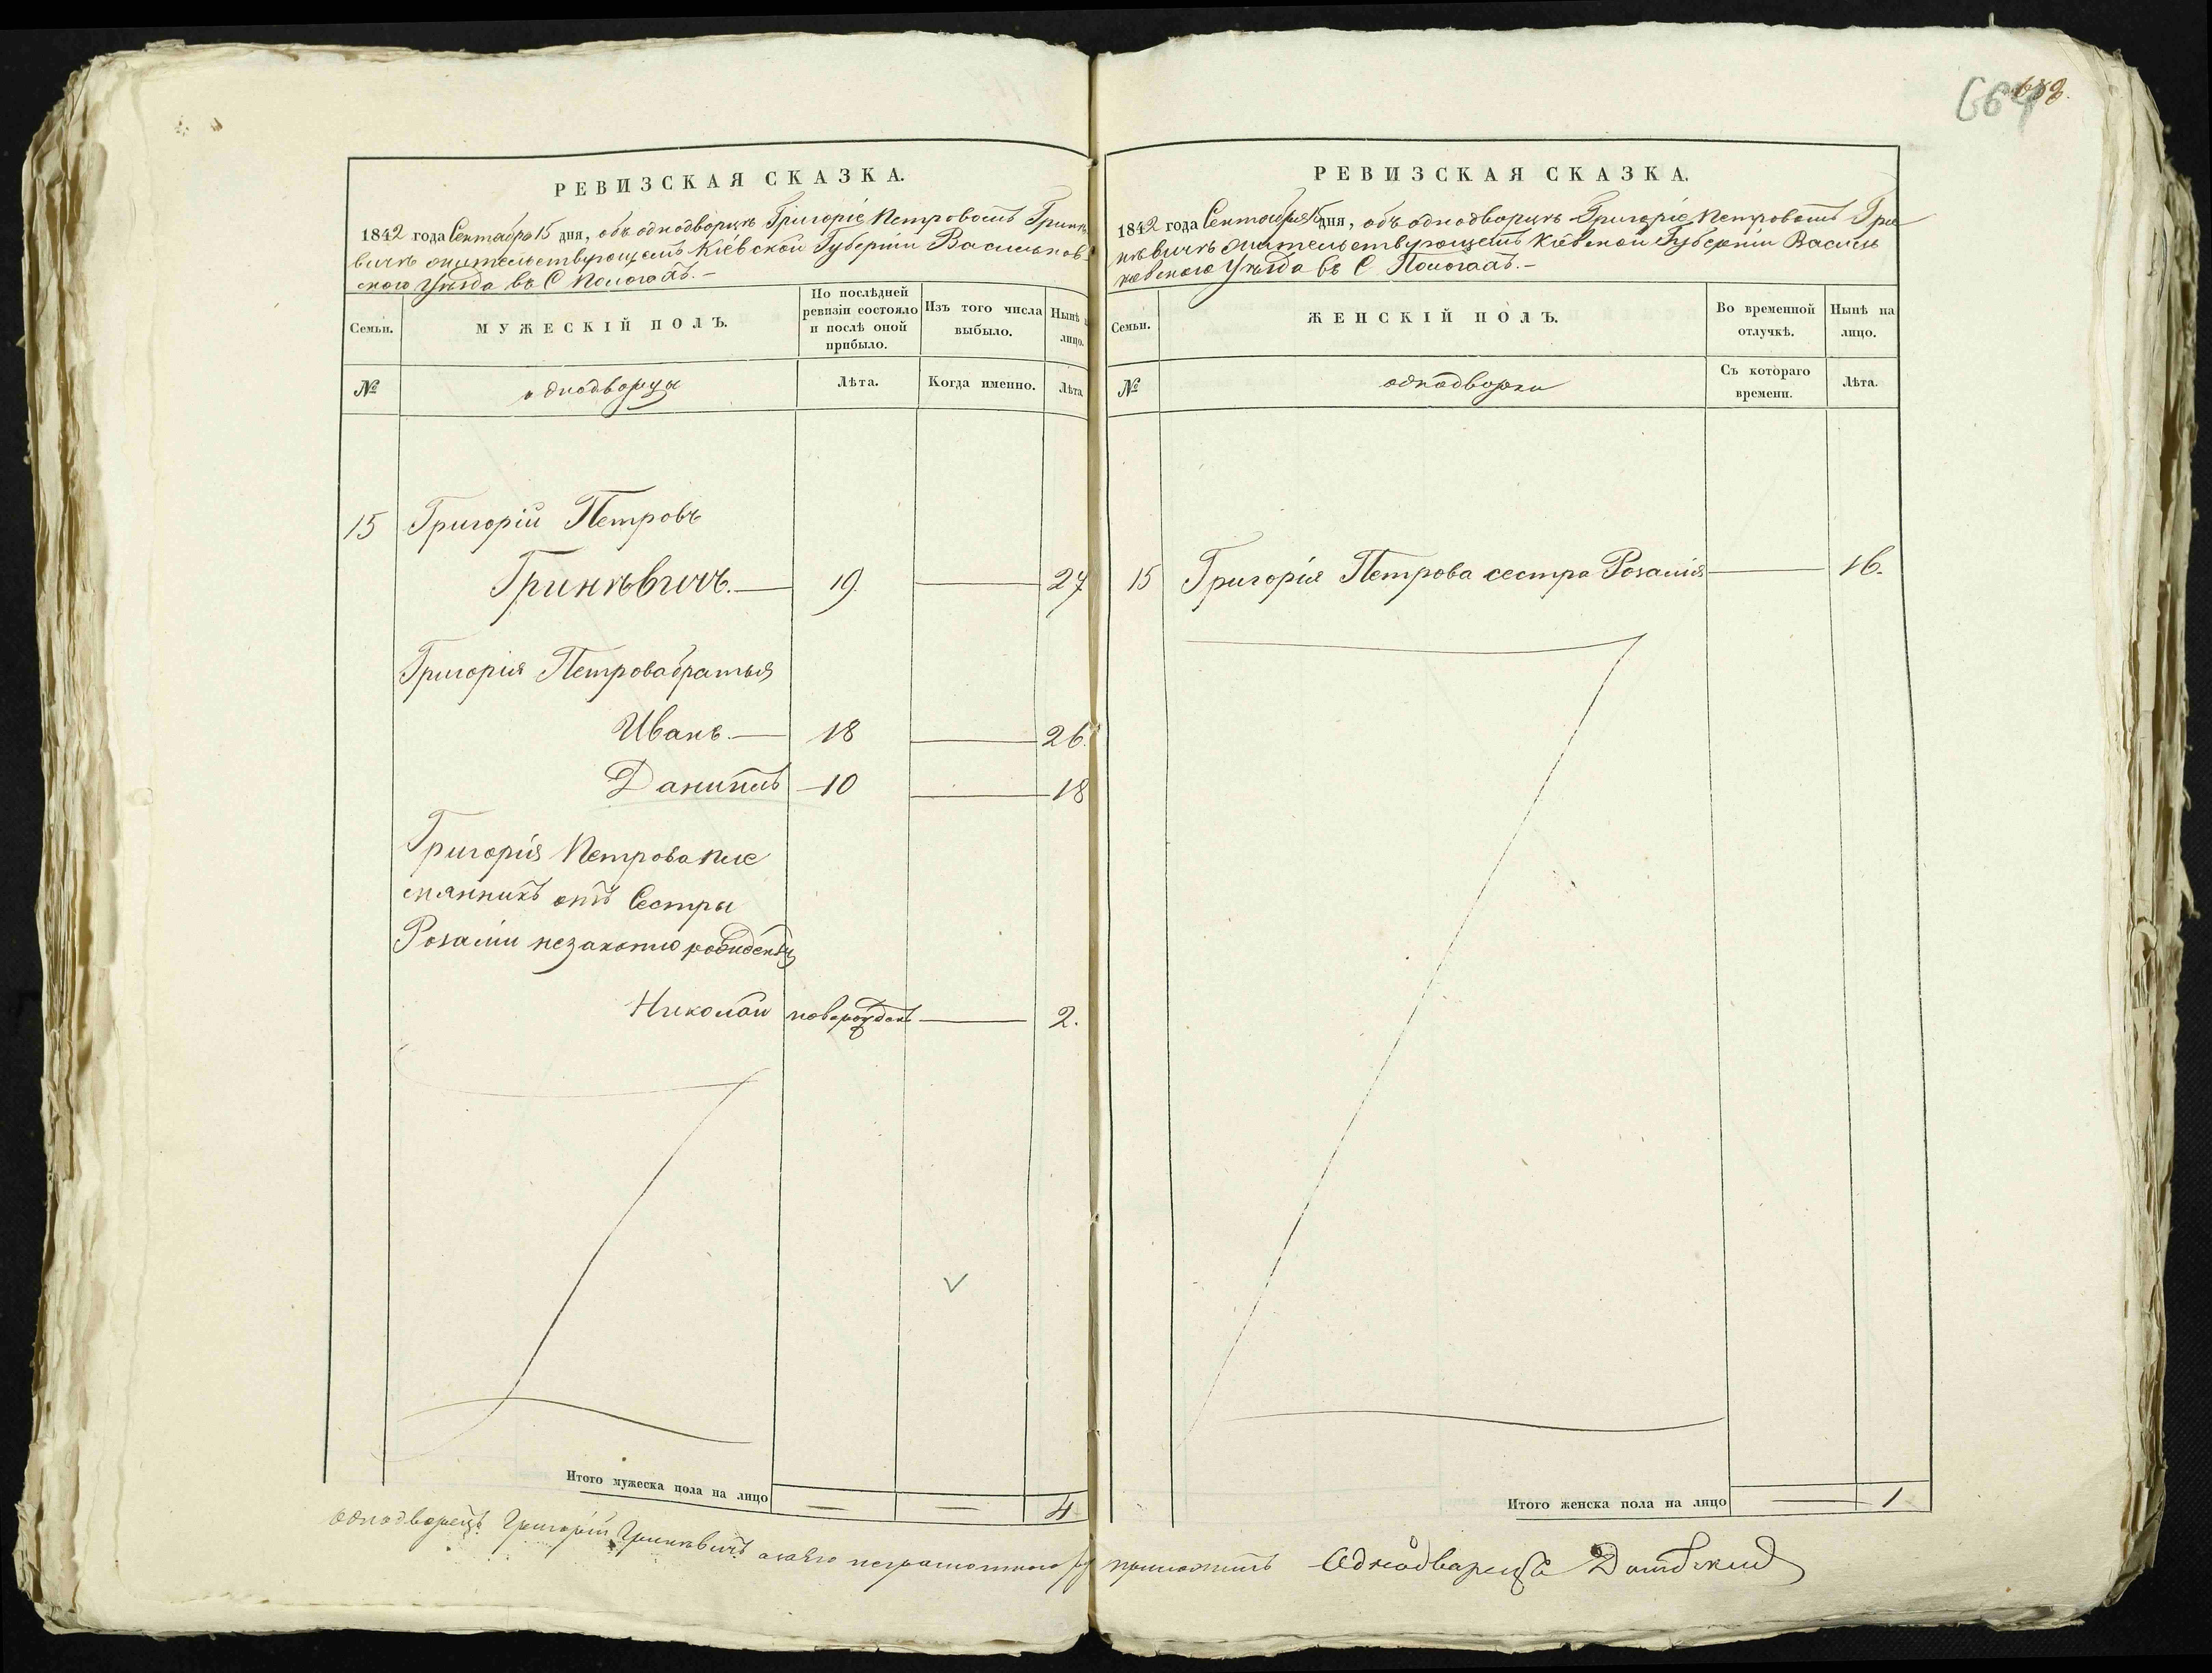 664
РЕВИЗСКАЯ СКАЗКА.
1842 года Сентября 15 дня, объ однодворцѣ Григоріе Петровомъ Гринѣ
вичѣ жительствующемъ Кіевской Губерніи Васильков
ского Уѣзда въ С Пологахъ.-
Семьи.
МУЖЕСКІЙ ПОЛЪ.
По послѣдней
ревизіи состояло
и послѣ оной
прибыло.
Изъ того числа
выбыло.
Нынѣ
лицо.
№
однодворцы
Лѣта.
Когда именно.
Лѣта
15 Григорій Петровъ
Гринѣвичъ.— 19. — 27
Григорія Петрова братья
Иванъ.— 18 — 26.
Даниилъ — 10 — 18
Григорія Петрова пле
мянникъ отъ Сестры
Розаліи незаконно рожденъ
Николай новорожденъ — 2.
Итого мужеска пола на лицо
4
РЕВИЗСКАЯ СКАЗКА.
1842 года Сентября 15 дня, объ однодворцѣ Григоріе Петровомъ Гри
нѣвичѣ жительствующемъ Кіевской Губерніи Василь
ковского Уѣзда въ С Пологахъ.-
Семьи.
ЖЕНСКІЙ ПОЛЪ.
Во временной
отлучкѣ.
Нынѣ на
лицо.
№
однодворки
Съ котораго
времени.
Лѣта.
15 Григорія Петрова сестра Розалія — 16.
Итого женска пола на лицо
1
Однодворецъ Григорій Гринѣвичъ а за его неграмотного приложилъ Однодварецъ